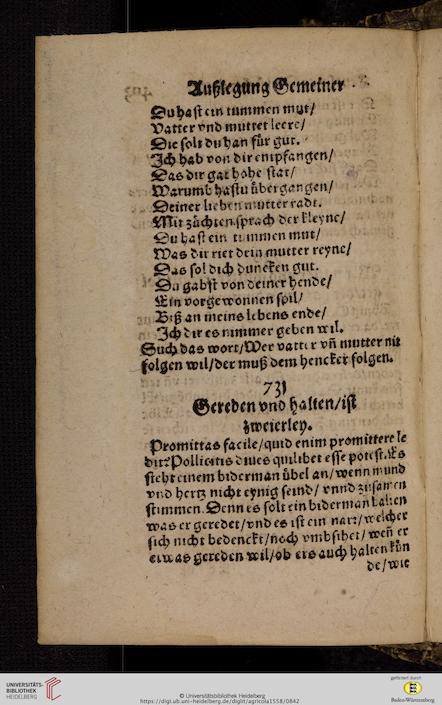 Außlegung Gemeiner
Du hast ein tummen mut/
Vatter vnd mutter leere/
Die solt du han für gut.
Ich hab von dir entpfangen/
Das dir gat hohe stat/
Warumb hastu übergangen/
Deiner lieben mutter radt.
Mit züchten sprach der kleyne/
Du hast ein tummen mut/
Was dir riet dein mutter reyne/
Das sol dich duncken gut.
Du gabst von deiner hende/
Ein vorgewonnen spil/
Biß an meins lebens ende/
Ich dir es nimmer geben wil.
Such das wort/Wer vatter vñ mutter nit
folgen wil/der muß dem hencker folgen.
731
Gereden vnd halten/ist
zweierley.
Promittas facile/quid enim promittere le
dit? Pollicitis diues quilibet esse potest. Es
steht einem biderman übel an/wenn mund
vnd hertz nicht eynig seind/vnnd zusamen
stimmen. Denn es solt ein biderman halten
was er geredet/vnd es ist ein narr/welcher
sich nicht bedenckt/noch vmbsihet/weñ er
etwas gereden wil/ob ers auch halten kün
de/wie
UNIVERSITÄTS-
BIBLIOTHEK
HEIDELBERG
© Universitätsbibliothek Heidelberg
https://digi.ub.uni-heidelberg.de/diglit/agricola1558/0842
gefördert durch
Baden-Württemberg